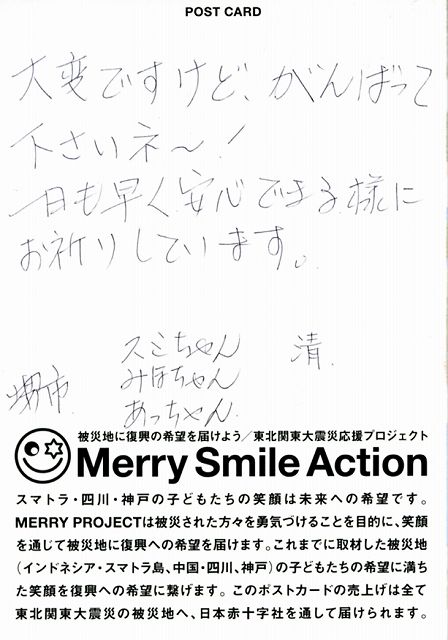 POST CARD
大変ですけど、がんばって
下さいネ〜!
一日も早く安心できる様に
お祈りしています。
スミちゃん 清
みほちゃん
堺市 あっちゃん
被災地に復興の希望を届けよう/東北関東大震災応援プロジェクト
Merry Smile Action
スマトラ・四川・神戸の子どもたちの笑顔は未来への希望です。
MERRY PROJECTは被災された方々を勇気づけることを目的に、笑顔
を通じて被災地に復興への希望を届けます。これまでに取材した被災地
(インドネシア・スマトラ島、中国・四川、神戸)の子どもたちの希望に満ち
た笑顔を復興への希望に繋げます。このポストカードの売上げは全て
東北関東大震災の被災地へ、日本赤十字社を通して届けられます。